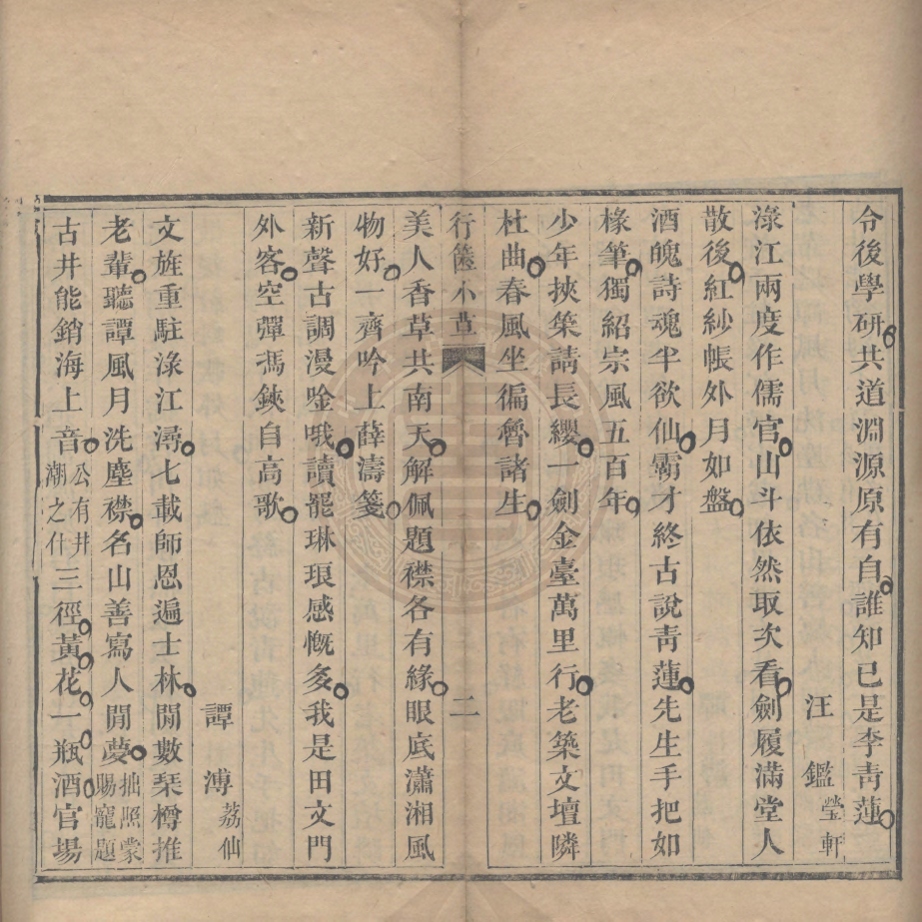 令後學研共道淵源原有自誰知已是李青蓮
汪鑑瑩軒
淥江兩度作儒官山斗依然取次看劍履滿堂人
散後紅紗帳外月如盤
酒魄詩魂半欲仙霸才終古說青蓮先生手把如
椽筆獨紹宗風五百年
少年挾筞請長纓一劍金臺萬里行老築文壇隣
杜曲春風坐徧舊諸生
行篋小草 二
美人香草共南天解佩題襟各有緣眼底瀟湘風
物好一齊吟上薛濤箋
新聲古調漫唫哦讀罷琳琅感慨多我是田文門
外客空彈馮鋏自高歌
譚溥荔仙
文旌重駐淥江潯七載師恩遍士林閒數琹樽推
老輩聽譚風月洗塵襟名山善寫人閒夢拙照蒙賜寵題
古井能銷海上音公有井潮之什三徑黃花一瓶酒官場